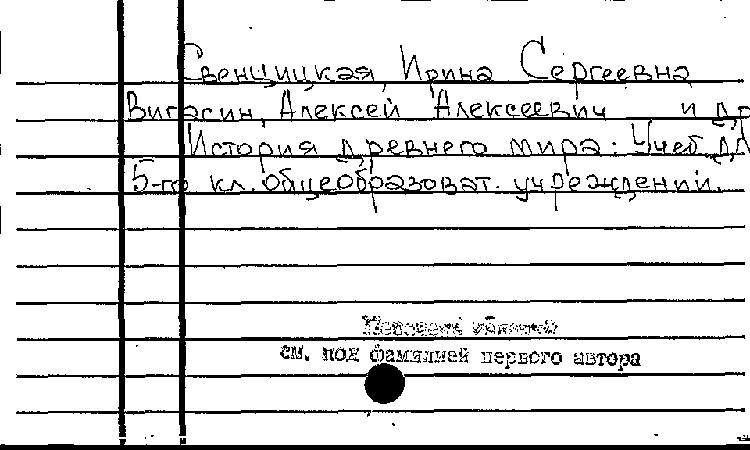 Свенцицкая, Ирина Сергеевна
Вигасин, Алексей Алексеевич и др
История древнего мира: Учеб. дл
5-го кл. общеобразоват. учреждений.
см. под фамилией первого автора